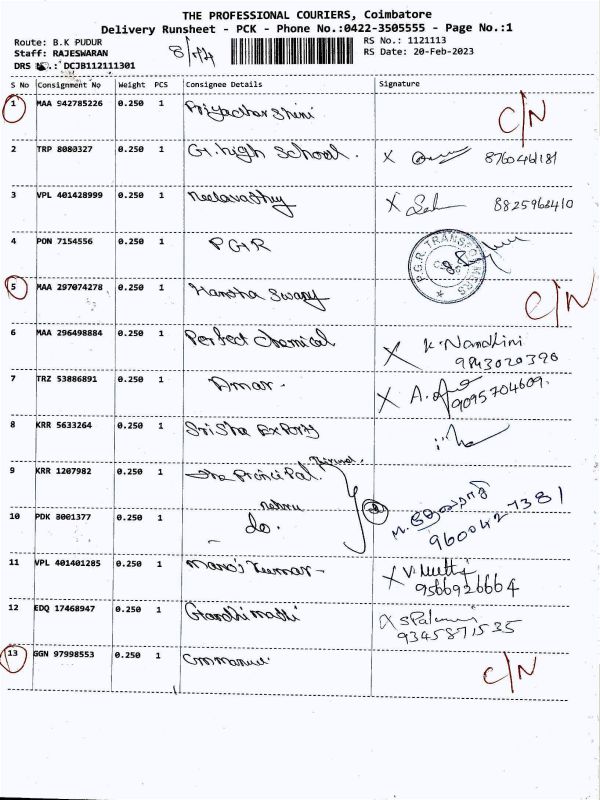 THE PROFESSIONAL COURIERS, Coimbatore
Delivery Runsheet - PCK - Phone No.:0422-3505555 - Page No.:1
Route: B.K PUDUR
RS No.: 1121113
Staff: RAJESWARAN
RS Date: 20-Feb-2023
DRS .: DCJB112111301
S No Consignment No Weight PCS Consignee Details Signature
1 MAA 942785226 0.250 1 Priyadharshini C/N
2 TRP 8080327 0.250 1 G.high School. X
3 VPL 401428999 0.250 1 X 8825968410
4 PON 7154556 0.250 1 PGR P.G.R. TRANSPORTERS
5 MAA 297074278 0.250 1 Hamsha Swamy C/N
6 MAA 296498884 0.250 1 Perfect chemical X K.Nandhini
9843020390
7 TRZ 53886891 0.250 1 Amar. X A.
9095704609.
8 KRR 5633264 0.250 1 Sri Sha Exports
9 KRR 1207982 0.250 1 The Principal.
nehru
10 PDK 3001377 0.250 1 do. 2
960042 7381
11 VPL 401401285 0.250 1 Manoj kumar- X V.Muthu
9566926664
12 EDQ 17468947 0.250 1 Gandhimathi X S Palani
9345871535
13 GGN 97998553 0.250 1 Emmanuel C/N